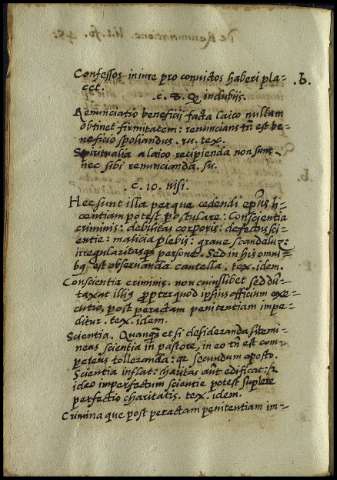 De Renuntiatione. Lib. fo. 45:
Confessos in iure pro convictos haberi pla=
cet.
.b.
c. 8. Q indubijs.
Renunciatio beneficij facta laico nullam
obtinet firmitatem: renuncians tñ est be=
neficio spoliandus. .ru. tex.
Spiritualia a laico recipienda non sunt
nec sibi renuncianda. su.
c. 10. nisi.
Hec sunt illa per que cedendi epus li=
centiam potest postulare: Conscientia
criminis: debilitas corporis: defectus sci=
entie: malicia plebis: grave scandalum:
irregularitasque persone. Sed in his omni=
bq est observanda cautella. tex. idem.
Conscientia criminis: non cuiuslibet sed du=
taxat illiq propter quod ipsius officium exe=
cutiq post peractam penitentiam impe=
ditur. tex. idem.
Scientia. Quamq et si desideranda sit emi=
nens scientia in pastore, in eo tñ est com=
petens tolleranda: qr secundum aposto.
Scientia inflat: charitas aut edificat: &
ideo imperfectum scientie potest suplere
perfectio charitatis. tex. idem.
Crimina que post peractam penitentiam im=